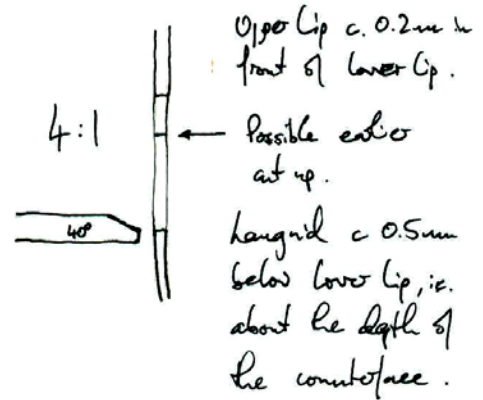 Upper lip c. 0.2mm in
front of lower lip.
4:1
Possible earlier
cut up.
40°
Languid c 0.5mm
below lower lip, i.e.
about the depth of
the counterface.